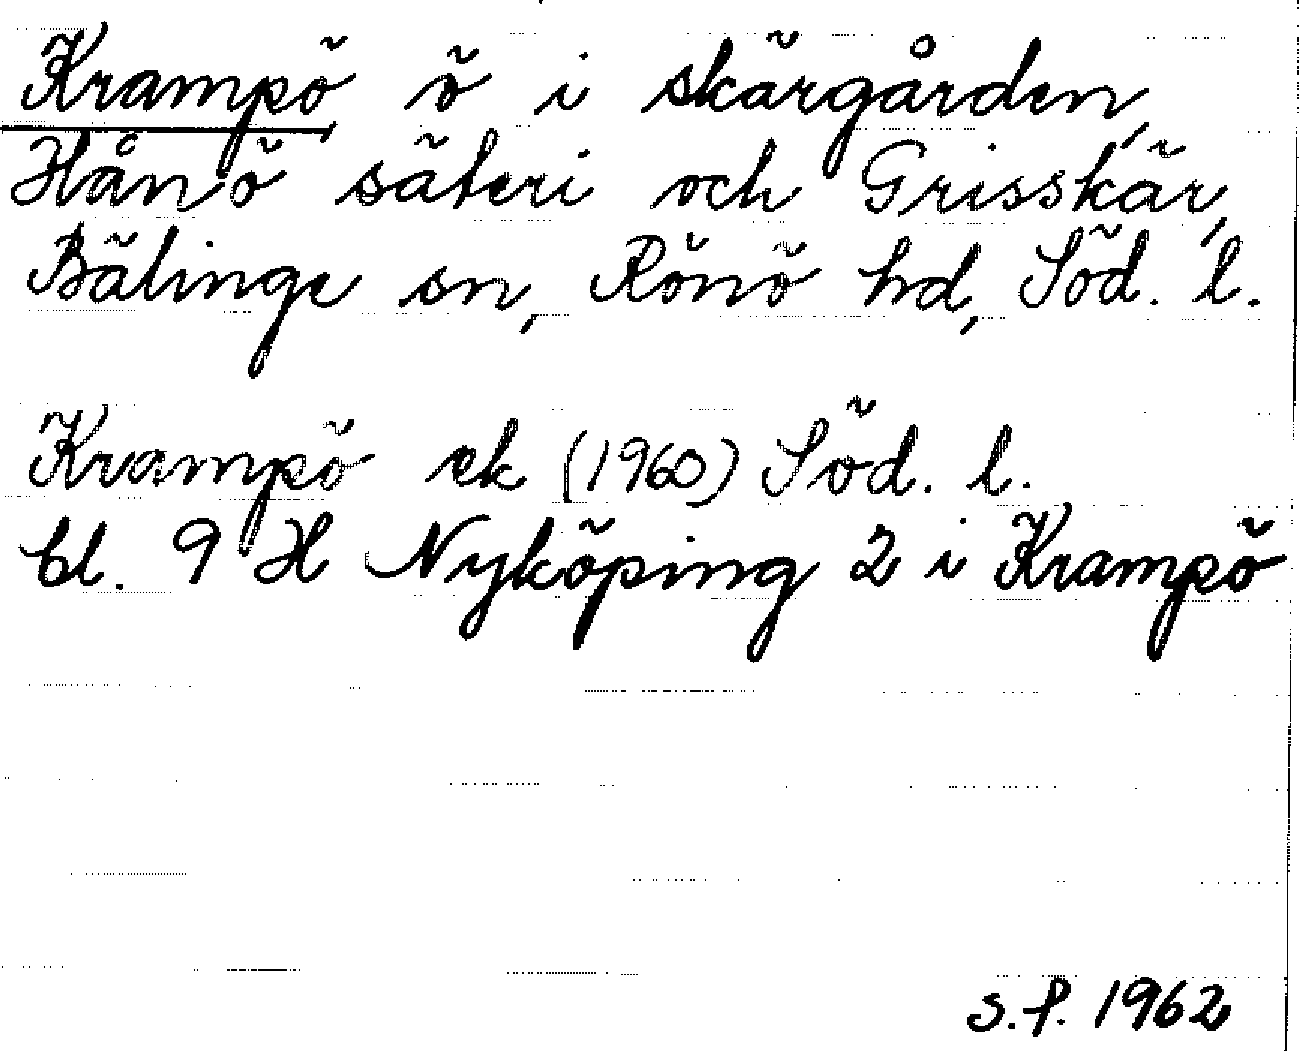 Krampö ö i skärgården,
Hånö säteri och Grisskär,
Bälinge sn, Rönö hd, Söd. l.
Krampö ek (1960) Söd. l.
bl. 9 H Nyköping 2 i Krampö
S.P. 1962